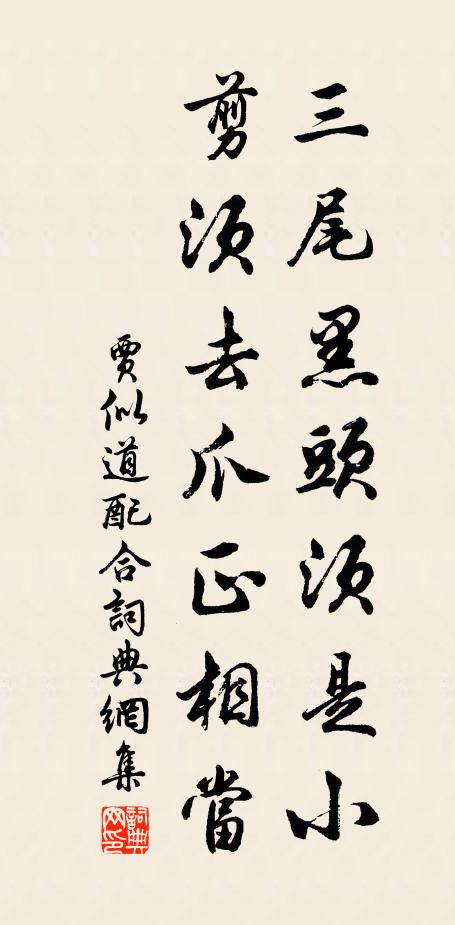 三尾黑頭須是小
剪須去爪正相當
賈似道配合詞典網集
詞典網印